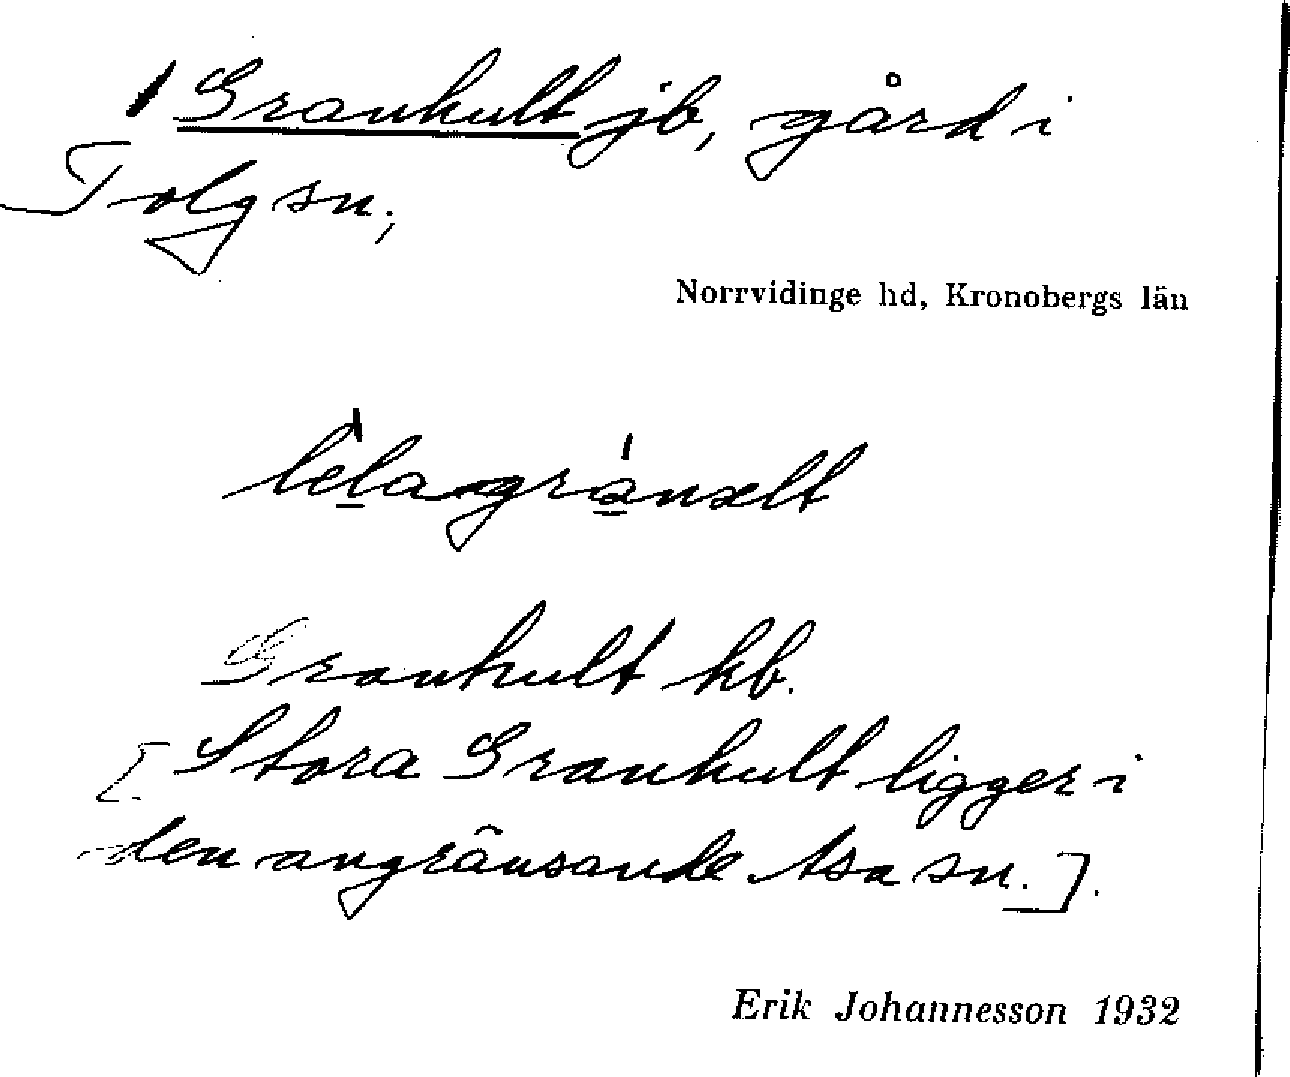 1 Granhult jb, gård i
Tolg sn.,
Norrvidinge hd, Kronobergs län
Granhult kb.
[Stora Granhult ligger i
den angränsande Asa sn.].
Erik Johannesson 1932